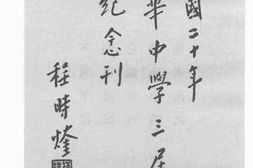 國二十年
華中學三屆
紀念刊
程時煃